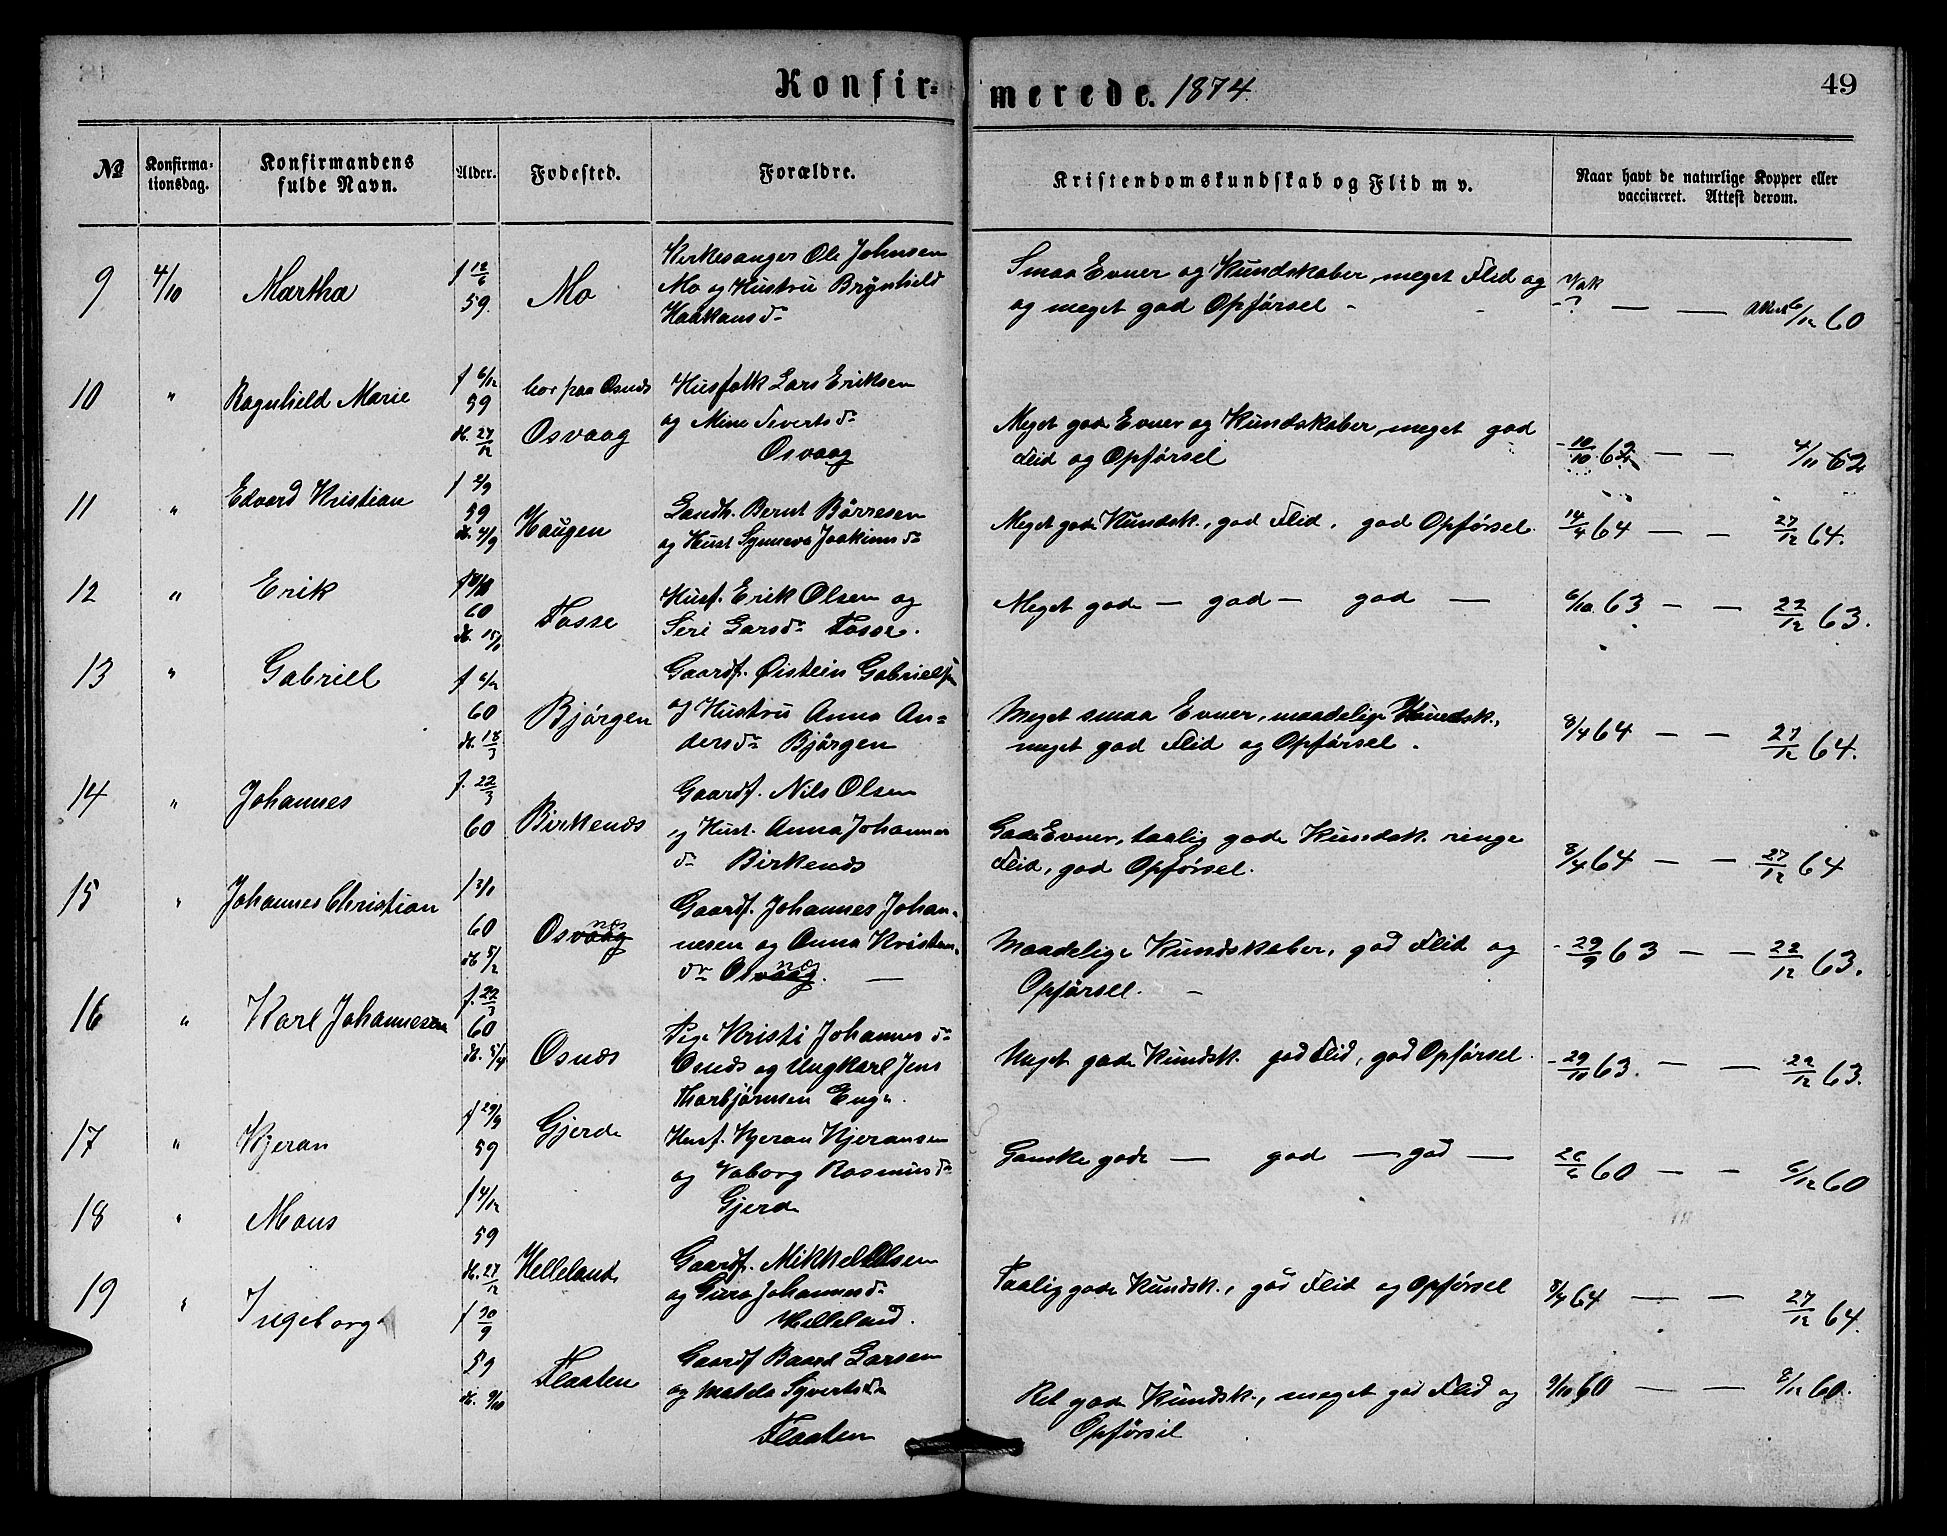 Konfir=merede. 1874. 49
№ Konfirma-tionsdag. Konfirmandens fulde Navn. Alder. Fødested. Forældre. Kristendomskundskab og Flid m v. Naar havt de naturlige Kopper eller vaccineret. Attest derom.
9 4/10 Martha f 59. Mo Kirkesanger Ole Johnsen
Mo og Hustru Brynhild
Haakansdr
Smaa Evner og Kundskaber, meget Flid og
og meget god Opførsel -
Vak ? — — Attest 6/12 60
10 " Ragnhild Marie f 6/12 59 d. 27/12 bor paa Osnæs Osvaag Husfolk Lars Eriksen
og Mine Sivertsdr
Osvaag
Meget gode Evner og Kundskaber, meget god
Flid og Opførsel
- 10/10 62 — — 4/11 62
11 " Edvard Kristian f 2/9 59 Haugen Landh. Bernt Børresen
og Hust Synneva Joakimsdr
Meget gode Kundsk., god Flid, god Opførsel. 14/4 64 — — 27/12 64.
12 " Erik 60 Fosse Husf. Erik Olsen og
Siri Larsdr Fosse.
Meget gode — god — god — 6/10 63 — — 22/12 63.
13 " Gabriel 60 d. 18/3 Bjørgen Gaardf. Øistein Gabrielsen
og Hustru Anna An=
dersdr Bjørgen
Meget smaa Evner, maadelige Kundsk.,
meget god Flid og Opførsel.
8/4 64 — — 27/12 64.
14 " Johannes f. 22/3 60 Birkenæs Gaardf. Nils Olsen
og Hust. Anna Johannes
dr Birkenæs
Gode Evner, taalig gode Kundsk. ringe
Flid, god Opførsel.
8/4 64 — — 27/12 64
15 " Johannes Christian f 3/1 60 d 5/2 Osvaag næs Gaardf. Johannes Johan-
nesen og Anna Kristens-
dr Osvaag næs. —
Maadelige Kundskaber, god Flid og
Opførsel. -
- 29/9 63 — — 22/12 63.
16 " Karl Johannesen f. 22/3 60 d. 5/4 Osnæs Pige Kristi Johannesdr
Osnæs og Ungkarl Jens
Thorbjørnsen Enge.
Meget gode Kundsk. god Flid, god Opførsel. - 29/10 63. — — 22/12 63.
17 " Kjeran f 29/9 59 Gjerde Husf. Kjeran Kjeransen
og Vaborg Rasmusdr
Gjerde
Ganske gode — god — god — 26/6 60 — — 6/12 60
18 " Mons f 4/12 59 d. 27/12 Helleland Gaardf. Mikkel Olsen
og Guro Johannesdr
Helleland.
Taalig gode Kundsk., god Flid og Opførsel 8/4 64 — — 27/12 64.
19 " Ingeborg f 20/9 59 d. 9/10 Flaaten Gaardf Baard Larsen
og Matela Syvertsdr
Flaaten
Ret gode Kundsk., meget god Flid og
Opførsel
9/10 60 — — 60.